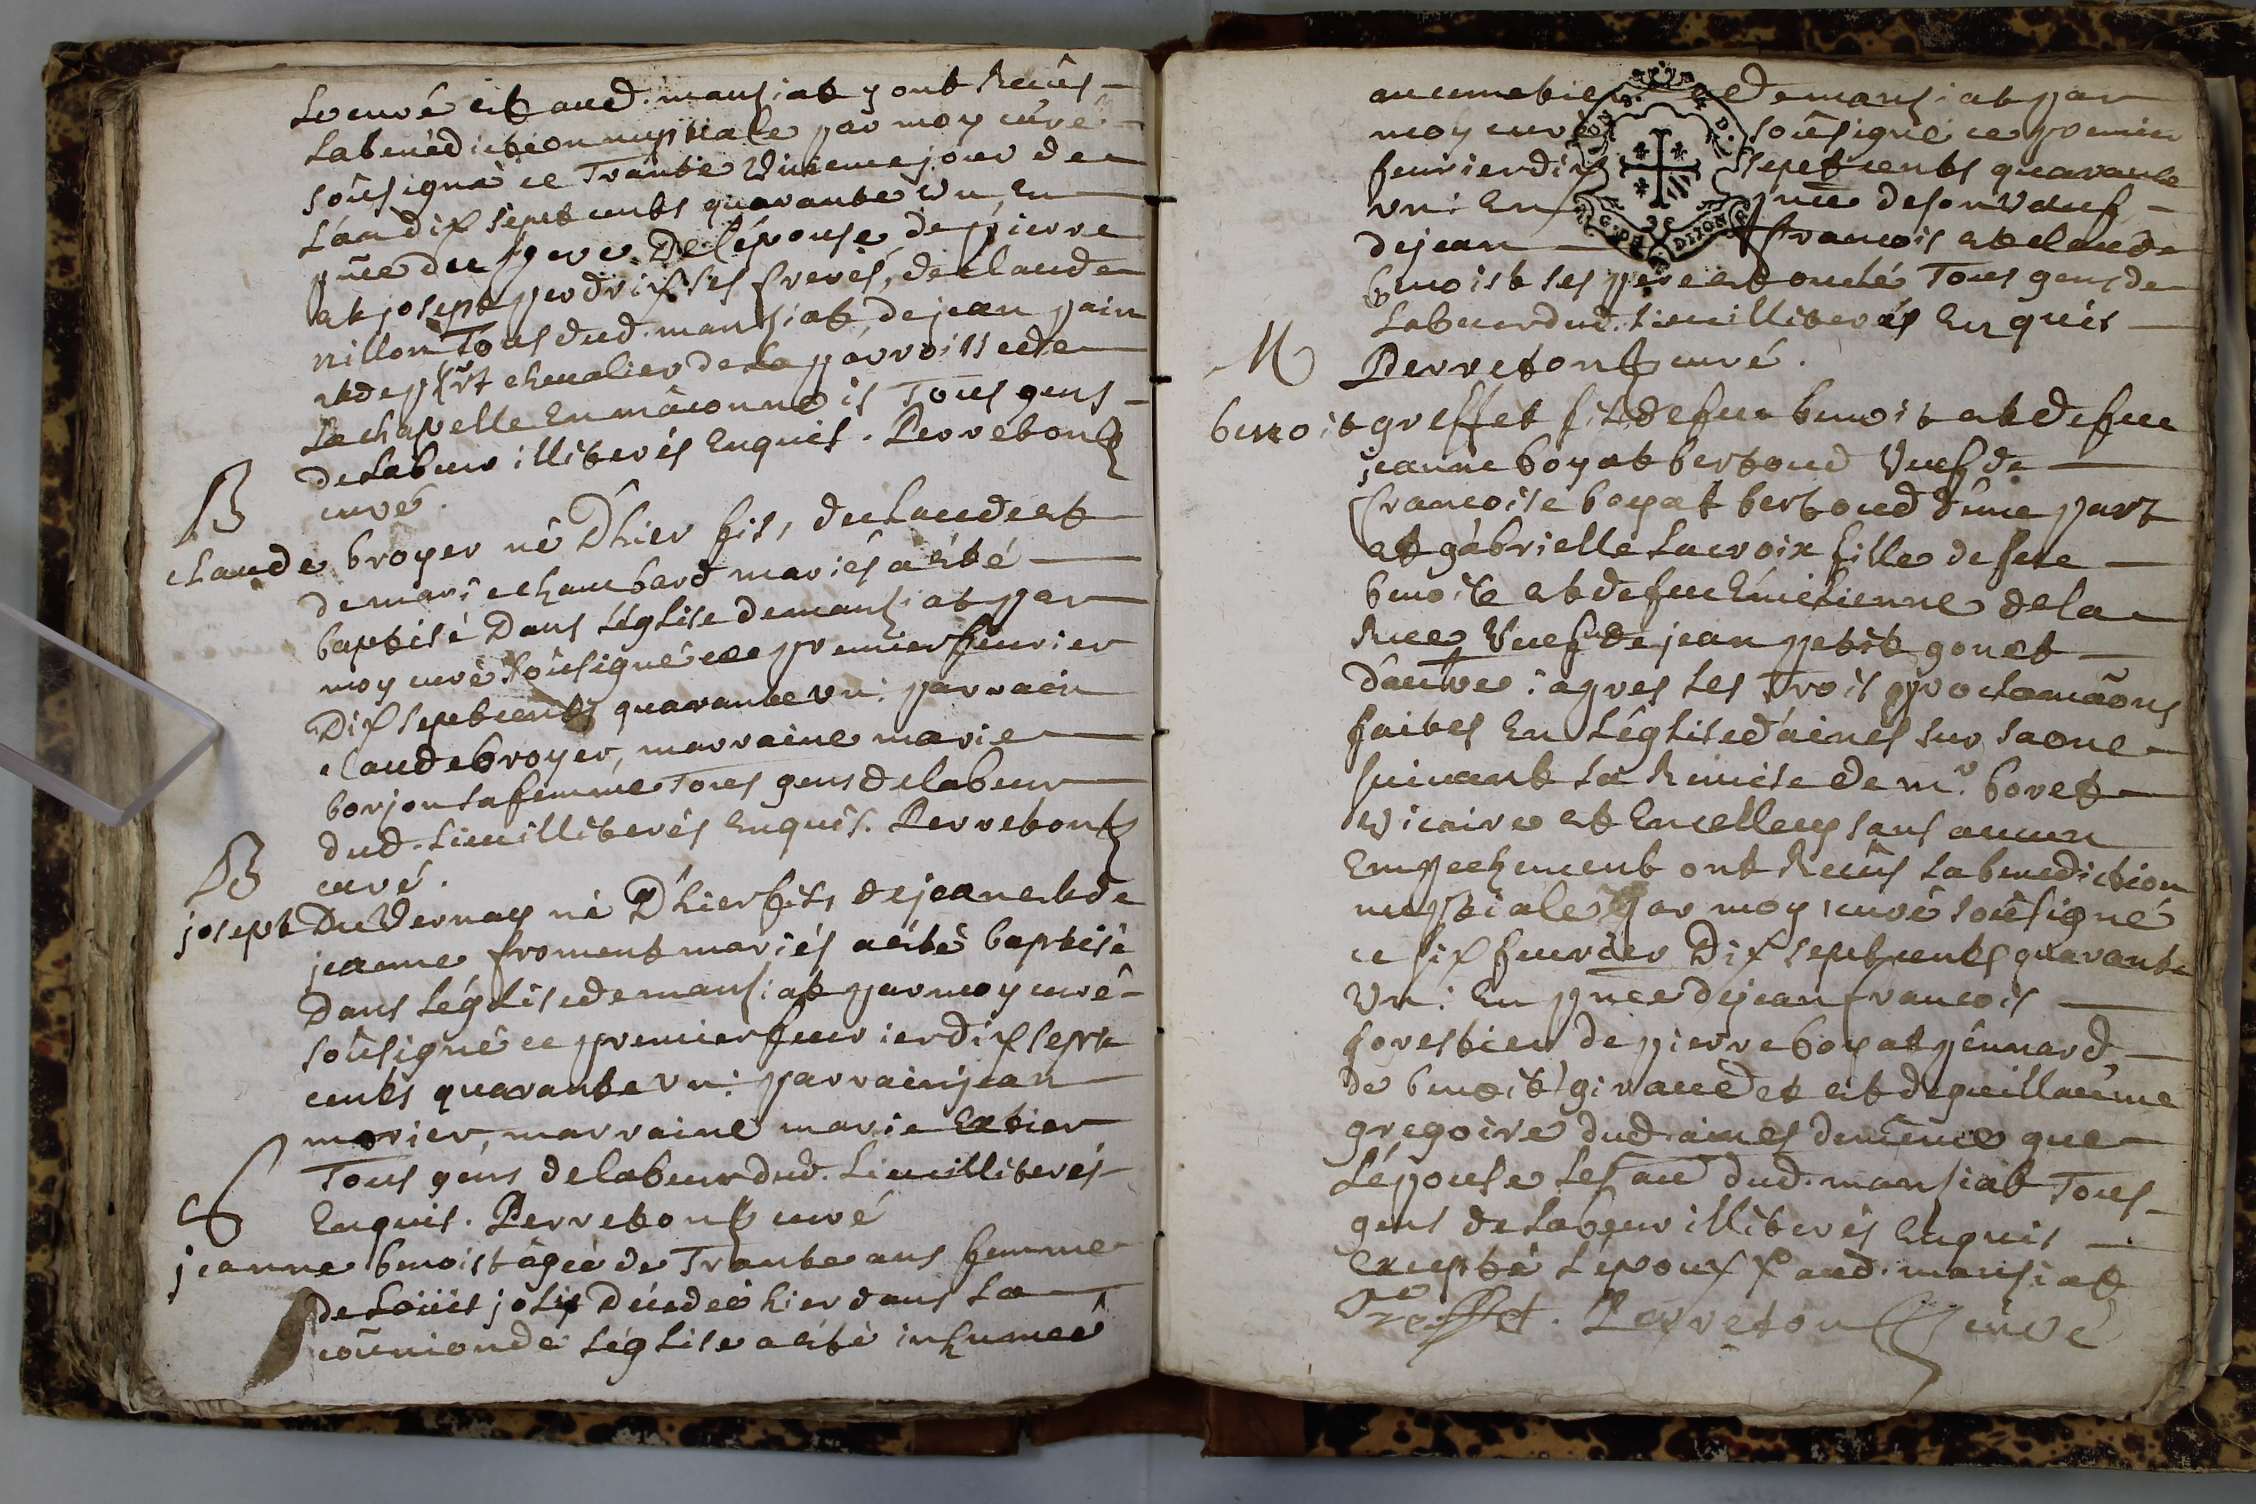 le curé est aud. mansiat y ont Reçûs
La bénédiction nuptiale par moy curé
soûsigné ce Trante Unieme jour de
L'an dix sept cents quarante un, En
pñce du pere De l'épouse, de pierre
et josept perdrix ses freres, de claude
nillon Tous dud. mansiat, de jean pain
et de chevalier de La parroisse de
La chapelle En mâconnois Tous gens
de Labeur illiterés Enquis. Perreton
curé.
B
claude broyer né D'hier fils, de claude et
de marie chambard mariés a été
baptisé Dans L'église de mansiat par
moy curé soûsigné ce premier feurier
Dix sept cents quarante un: parrain
claude broyer, marraine marie
borjon sa femme Tous gens de labeur
dud. Lieu illiterés Enquis. Perreton
curé.
B
josept Du Vernay né D'hier fils, de jean et de
jeanne froment mariés a été baptisé
Dans L'église de mansiat par moy curé
soûsigné ce premier feurier dix sept
cents quarante un: parrain jean
morier, marraine marie
Tous gens de labeur dud. Lieu illiterés
Enquis. Perreton curé
S
jeanne benoist âgée de Trante ans femme
de Loüis joly Décedée hier dans La
coũnion de L'église a été inhumée
au cimetiere de mansiat par
moy curé soûsigné ce premier
feurier dix sept cents quarante
un: En pñce de son Veuf
de jean francois et claude
benoist ses pere et oncle Tous gens de
Labeur dud. Lieu illiterés Enquis
Perreton curé.
M
benoit greffet fils de feu benoit et de feue
jeanne boyat bertoud Veuf de
francoise boyat bertoud d'une part
et gabrielle Lacroix fille de feu
benoît et de feue Emilienne de la
Rue Veufue de jean petit gonet
d'autre: apres Les Trois proclamaõns
faites En L'église d'aines sur saone
suivant La Remise de mr. boret
vicaire et En celle cy sans aucun
Empechement ont Reçûs La benediction
nuptiale par moy curé soûsigné
ce six feurier Dix sept cents quarante
Un: En pñce de jean francois
forestier de pierre boyat pennard
de benoit giraud et et de guillaume
gregoire dud. aines de même que
L'épouse Les au dud. mansiat Tous
gens de Labeur illiterés Enquis
Excepté L'epoux aud. mansiat
Greffet. Perreton curé